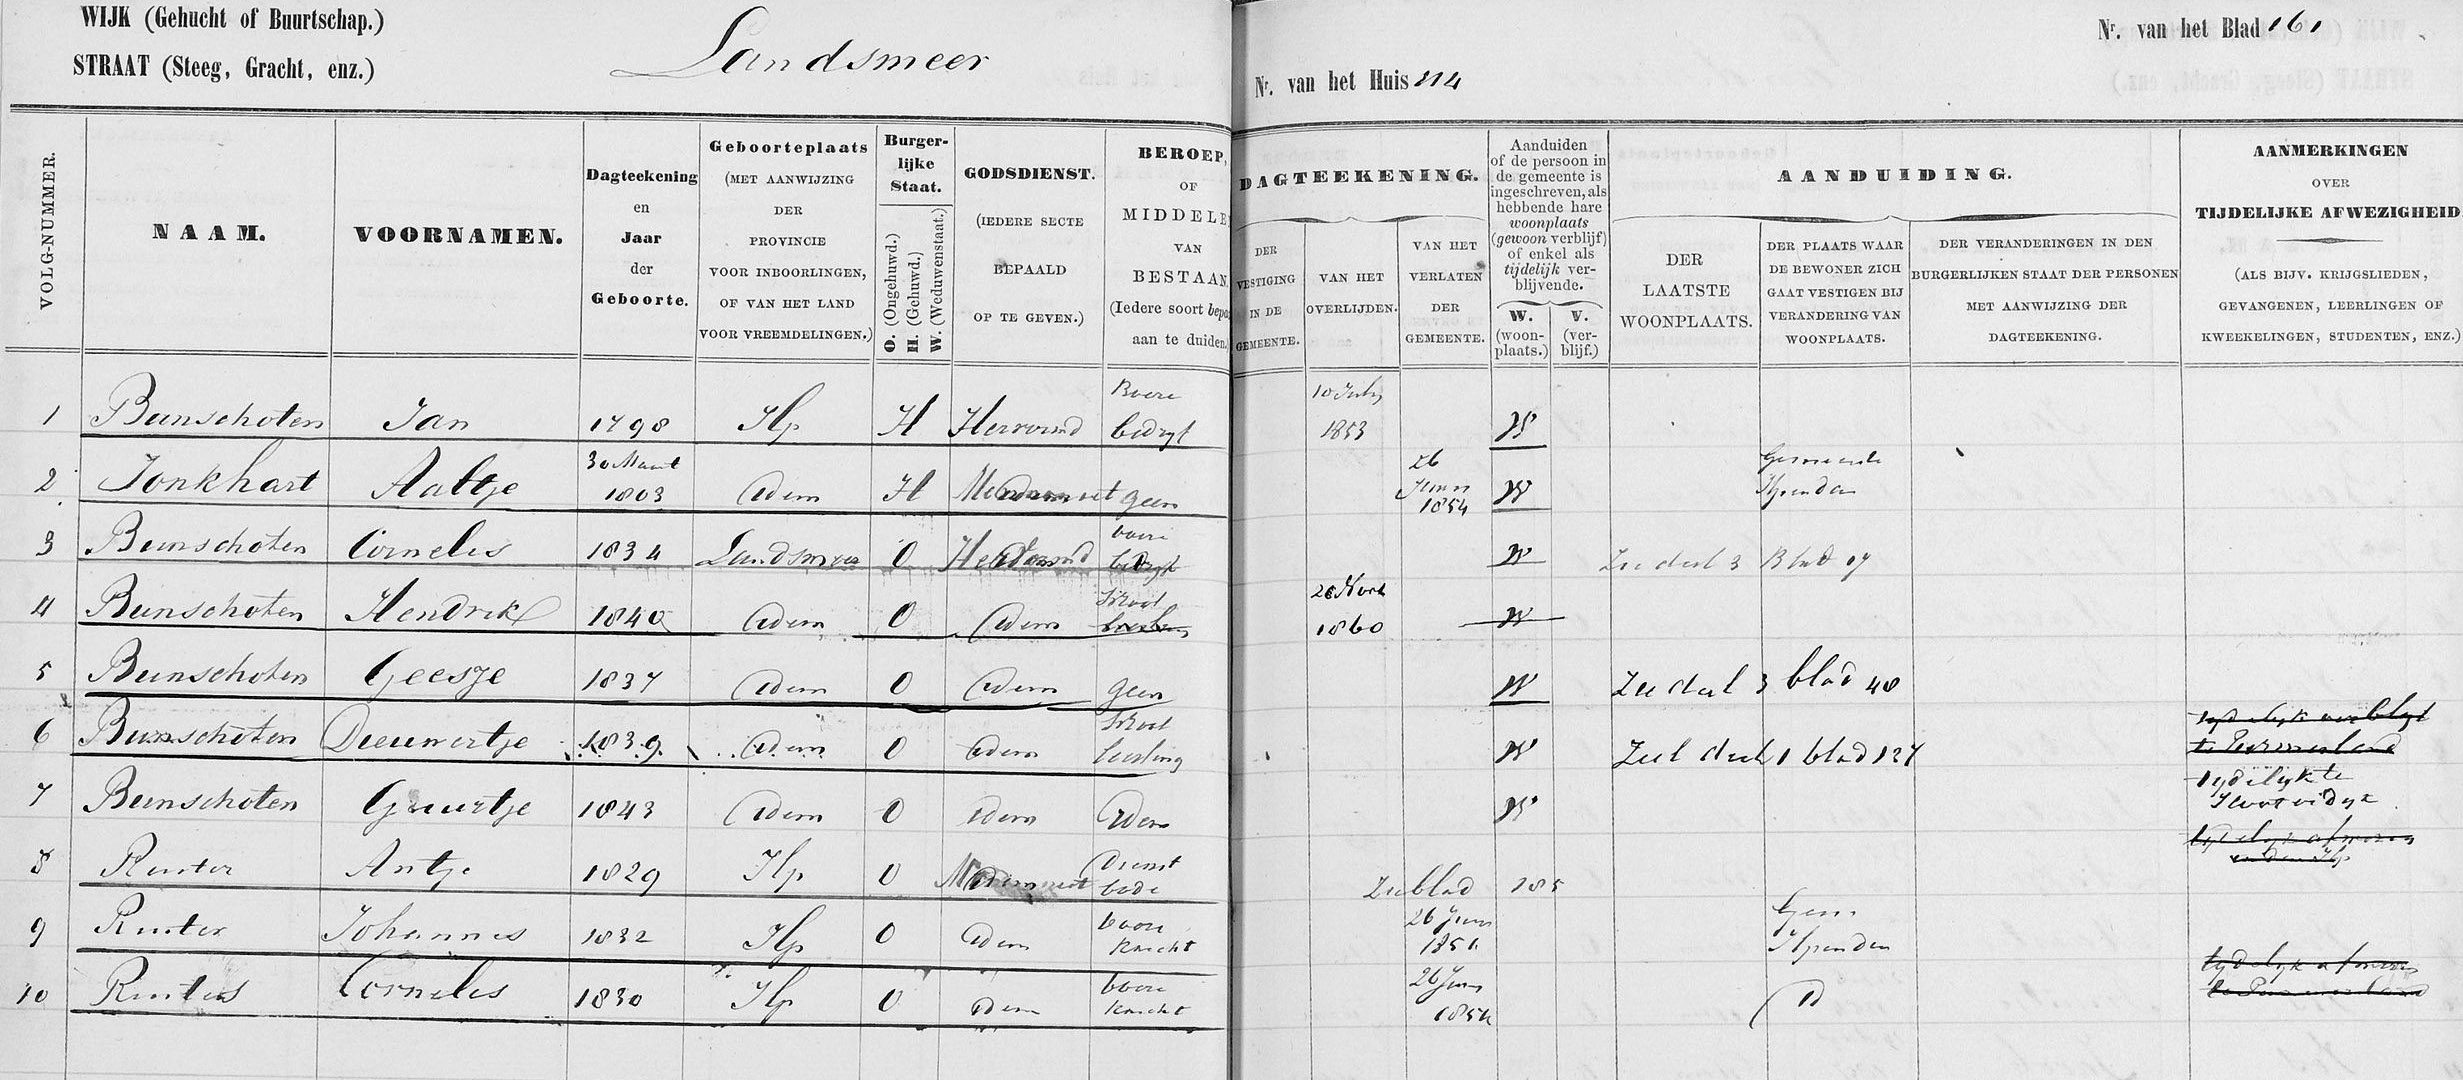 WIJK (Gehucht of Buurtschap.)
STRAAT (Steeg, Gracht, enz.)
Landsmeer
Nr. van het Blad 161
Nr. van het Huis 114
VOLG-NUMMER.
NAAM.
VOORNAMEN.
Dagteekening
en
Jaar
der
Geboorte.
Geboorteplaats
(MET AANWIJZING
DER
PROVINCIE
VOOR INBOORLINGEN,
OF VAN HET LAND
VOOR VREEMDELINGEN.)
Burger-
lijke
Staat.
O. (Ongehuwd.)
H. (Gehuwd.)
W. (Weduwenstaat.)
GODSDIENST.
(IEDERE SECTE
BEPAALD
OP TE GEVEN.)
BEROEP,
OF
MIDDELE
VAN
BESTAAN.
(Iedere soort bepa
aan te duiden.
DAGTEEKENING.
DER
VESTIGING
IN DE
GEMEENTE.
VAN HET
OVERLIJDEN.
VAN HET
VERLATEN
DER
GEMEENTE.
Aanduiden
of de persoon in
de gemeente is
ingeschreven, als
hebbende hare
woonplaats
(gewoon verblijf)
of enkel als
tijdelijk ver-
blijvende.
W.
(woon-
plaats.)
V.
(ver-
blijf.)
AANDUIDING.
DER
LAATSTE
WOONPLAATS.
DER PLAATS WAAR
DE BEWONER ZICH
GAAT VESTIGEN BIJ
VERANDERING VAN
WOONPLAATS.
DER VERANDERINGEN IN DEN
BURGERLIJKEN STAAT DER PERSONEN
MET AANWIJZING DER
DAGTEEKENING.
AANMERKINGEN
OVER
TIJDELIJKE AFWEZIGHEID
(ALS BIJV. KRIJGSLIEDEN,
GEVANGENEN, LEERLINGEN OF
KWEEKELINGEN, STUDENTEN, ENZ.)
1 Bunschoten Jan 1798 Ilp H Hervormd Boere bedryf 10 July 1853 W
2 Jonkhart Aaltje 30 Maart 1803 Idem H geen 26 Juny 1854 W Gemeente Ilpendam
3 Bunschoten Cornelis 1834 Landsmeer O boere bedryf W Zie deel 3 Blad 17
4 Bunschoten Hendrik 1840 Idem O Idem School 1860 W
5 Bunschoten Geesje 1837 Idem O Idem geen W Zie deel 3 blad 48
6 Bunschoten Dieuwertje 1839 Idem O Idem School leerling W Zie deel 1 blad 127
7 Bunschoten Guurtje 1843 Idem O idem Idem W tydelyk te
8 Ruiter Antje 1829 Ilp O Dienst bode Zie blad 185
9 Ruiter Johannis 1832 Ilp O Idem boere knecht 26 Juny 1854 Gem. Ilpendam
10 Ruiter Cornelis 1830 Ilp O Idem boere knecht 26 Juny 1854 Id